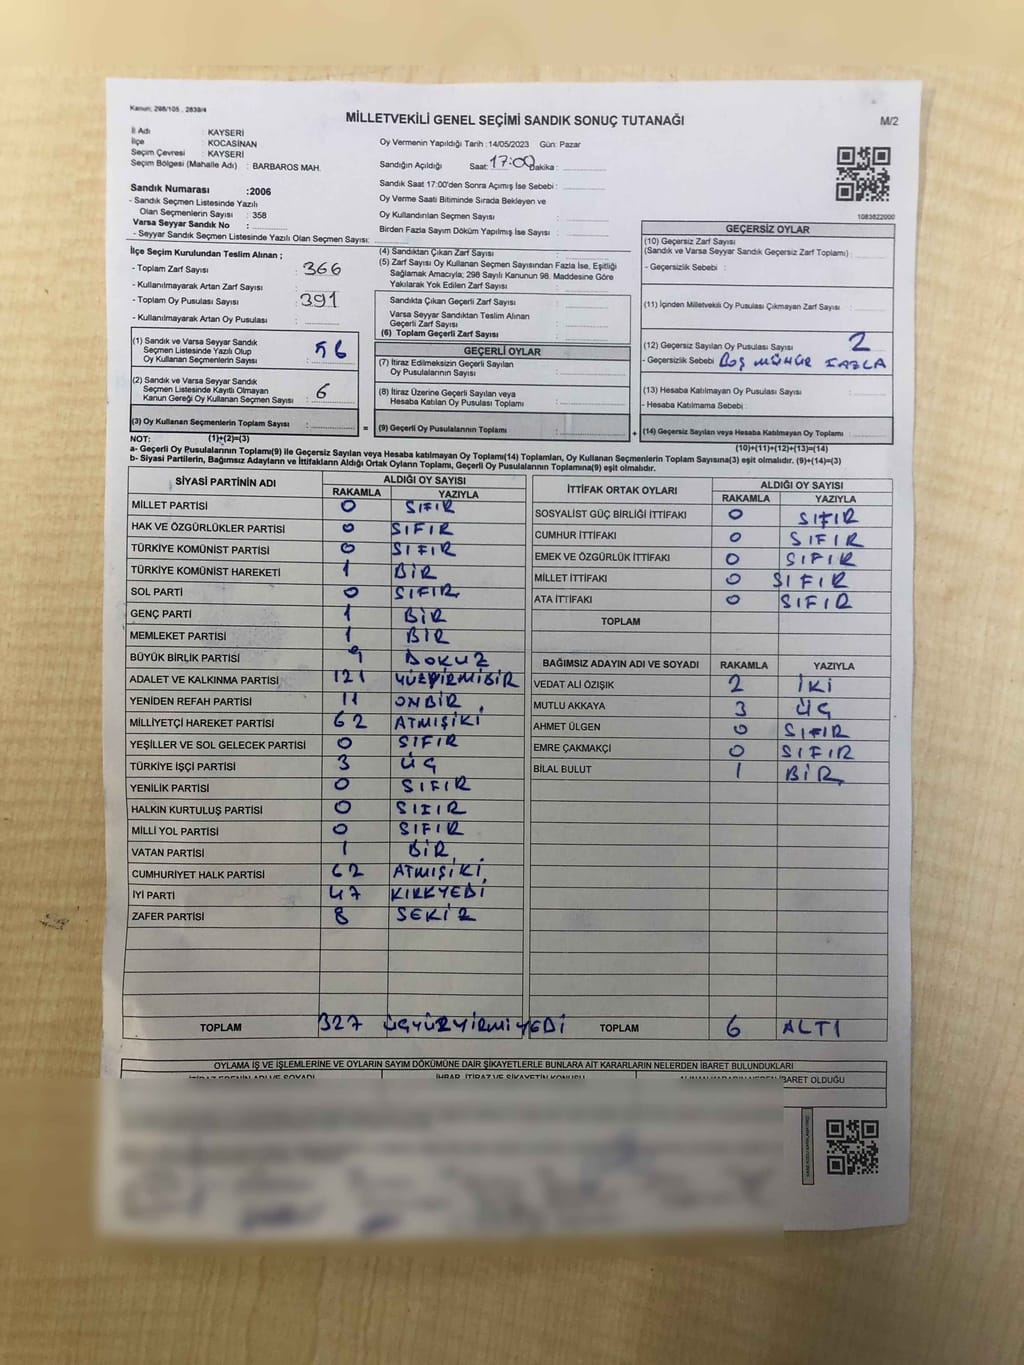 Kanun: 298/105 , 2839/4
MİLLETVEKİLİ GENEL SEÇİMİ SANDIK SONUÇ TUTANAĞI
M/2
İl Adı : KAYSERİ
İlçe : KOCASİNAN
Seçim Çevresi : KAYSERİ
Seçim Bölgesi (Mahalle Adı) : BARBAROS MAH.
Oy Vermenin Yapıldığı Tarih : 14/05/2023 Gün: Pazar
Sandığın Açıldığı Saat: 17:00 Dakika :
Sandık Saat 17:00'den Sonra Açılmış İse Sebebi :
Oy Verme Saati Bitiminde Sırada Bekleyen ve
Oy Kullandırılan Seçmen Sayısı :
Birden Fazla Sayım Döküm Yapılmış İse Sayısı :
1083822000
Sandık Numarası : 2006
- Sandık Seçmen Listesinde Yazılı
Olan Seçmenlerin Sayısı : 358
Varsa Seyyar Sandık No :
- Seyyar Sandık Seçmen Listesinde Yazılı Olan Seçmen Sayısı:
İlçe Seçim Kurulundan Teslim Alınan ;
- Toplam Zarf Sayısı : 366
- Kullanılmayarak Artan Zarf Sayısı :
- Toplam Oy Pusulası Sayısı : 391
- Kullanılmayarak Artan Oy Pusulası :
(1) Sandık ve Varsa Seyyar Sandık
Seçmen Listesinde Yazılı Olup
Oy Kullanan Seçmenlerin Sayısı :
(2) Sandık ve Varsa Seyyar Sandık
Seçmen Listesinde Kayıtlı Olmayan
Kanun Gereği Oy Kullanan Seçmen Sayısı : 6
(3) Oy Kullanan Seçmenlerin Toplam Sayısı :
(4) Sandıktan Çıkan Zarf Sayısı :
(5) Zarf Sayısı Oy Kullanan Seçmen Sayısından Fazla İse, Eşitliği
Sağlamak Amacıyla; 298 Sayılı Kanunun 98. Maddesine Göre
Yakılarak Yok Edilen Zarf Sayısı :
Sandıkta Çıkan Geçerli Zarf Sayısı :
Varsa Seyyar Sandıktan Teslim Alınan
Geçerli Zarf Sayısı :
(6) Toplam Geçerli Zarf Sayısı :
GEÇERLİ OYLAR
(7) İtiraz Edilmeksizin Geçerli Sayılan
Oy Pusulalarının Sayısı :
(8) İtiraz Üzerine Geçerli Sayılan veya
Hesaba Katılan Oy Pusulası Toplamı :
= (9) Geçerli Oy Pusulalarının Toplamı :
GEÇERSİZ OYLAR
(10) Geçersiz Zarf Sayısı
(Sandık ve Varsa Seyyar Sandık Geçersiz Zarf Toplamı) :
- Geçersizlik Sebebi :
(11) İçinden Milletvekili Oy Pusulası Çıkmayan Zarf Sayısı :
(12) Geçersiz Sayılan Oy Pusulası Sayısı : 2
- Geçersizlik Sebebi : BOŞ MÜHÜR FAZLA
(13) Hesaba Katılmayan Oy Pusulası Sayısı :
- Hesaba Katılmama Sebebi :
+ (14) Geçersiz Sayılan veya Hesaba Katılmayan Oy Toplamı :
NOT: (1)+(2)=(3)
(10)+(11)+(12)+(13)=(14)
a- Geçerli Oy Pusulalarının Toplamı(9) ile Geçersiz Sayılan veya Hesaba katılmayan Oy Toplamı(14) Toplamları, Oy Kullanan Seçmenlerin Toplam Sayısına(3) eşit olmalıdır. (9)+(14)=(3)
b- Siyasi Partilerin, Bağımsız Adayların ve İttifakların Aldığı Ortak Oyların Toplamı, Geçerli Oy Pusulalarının Toplamına(9) eşit olmalıdır.
SİYASİ PARTİNİN ADI ALDIĞI OY SAYISI
RAKAMLA YAZIYLA
MİLLET PARTİSİ 0 SIFIR
HAK VE ÖZGÜRLÜKLER PARTİSİ 0 SIFIR
TÜRKİYE KOMÜNİST PARTİSİ 0 SIFIR
TÜRKİYE KOMÜNİST HAREKETİ 1 BİR
SOL PARTİ 0 SIFIR
GENÇ PARTİ 1 BİR
MEMLEKET PARTİSİ 1 BİR
BÜYÜK BİRLİK PARTİSİ 9 DOKUZ
ADALET VE KALKINMA PARTİSİ 121 YÜZYİRMİBİR
YENİDEN REFAH PARTİSİ 11 ONBİR
MİLLİYETÇİ HAREKET PARTİSİ 62 ATMIŞİKİ
YEŞİLLER VE SOL GELECEK PARTİSİ 0 SIFIR
TÜRKİYE İŞÇİ PARTİSİ 3 ÜÇ
YENİLİK PARTİSİ 0 SIFIR
HALKIN KURTULUŞ PARTİSİ 0 SIFIR
MİLLİ YOL PARTİSİ 0 SIFIR
VATAN PARTİSİ 1 BİR
CUMHURİYET HALK PARTİSİ 62 ATMIŞİKİ
İYİ PARTİ 47 KIRKYEDİ
ZAFER PARTİSİ 8 SEKİZ
TOPLAM 327 ÜÇYÜZYİRMİYEDİ
İTTİFAK ORTAK OYLARI ALDIĞI OY SAYISI
RAKAMLA YAZIYLA
SOSYALIST GÜÇ BİRLİĞİ İTTİFAKI 0 SIFIR
CUMHUR İTTİFAKI 0 SIFIR
EMEK VE ÖZGÜRLÜK İTTİFAKI 0 SIFIR
MİLLET İTTİFAKI 0 SIFIR
ATA İTTİFAKI 0 SIFIR
TOPLAM
BAĞIMSIZ ADAYIN ADI VE SOYADI RAKAMLA YAZIYLA
VEDAT ALİ ÖZIŞIK 2 İKİ
MUTLU AKKAYA 3 ÜÇ
AHMET ÜLGEN 0 SIFIR
EMRE ÇAKMAKÇİ 0 SIFIR
BİLAL BULUT 1 BİR
TOPLAM 6 ALTI
OYLAMA İŞ VE İŞLEMLERİNE VE OYLARIN SAYIM DÖKÜMÜNE DAİR ŞİKAYETLERLE BUNLARA AİT KARARLARIN NELERDEN İBARET BULUNDUKLARI